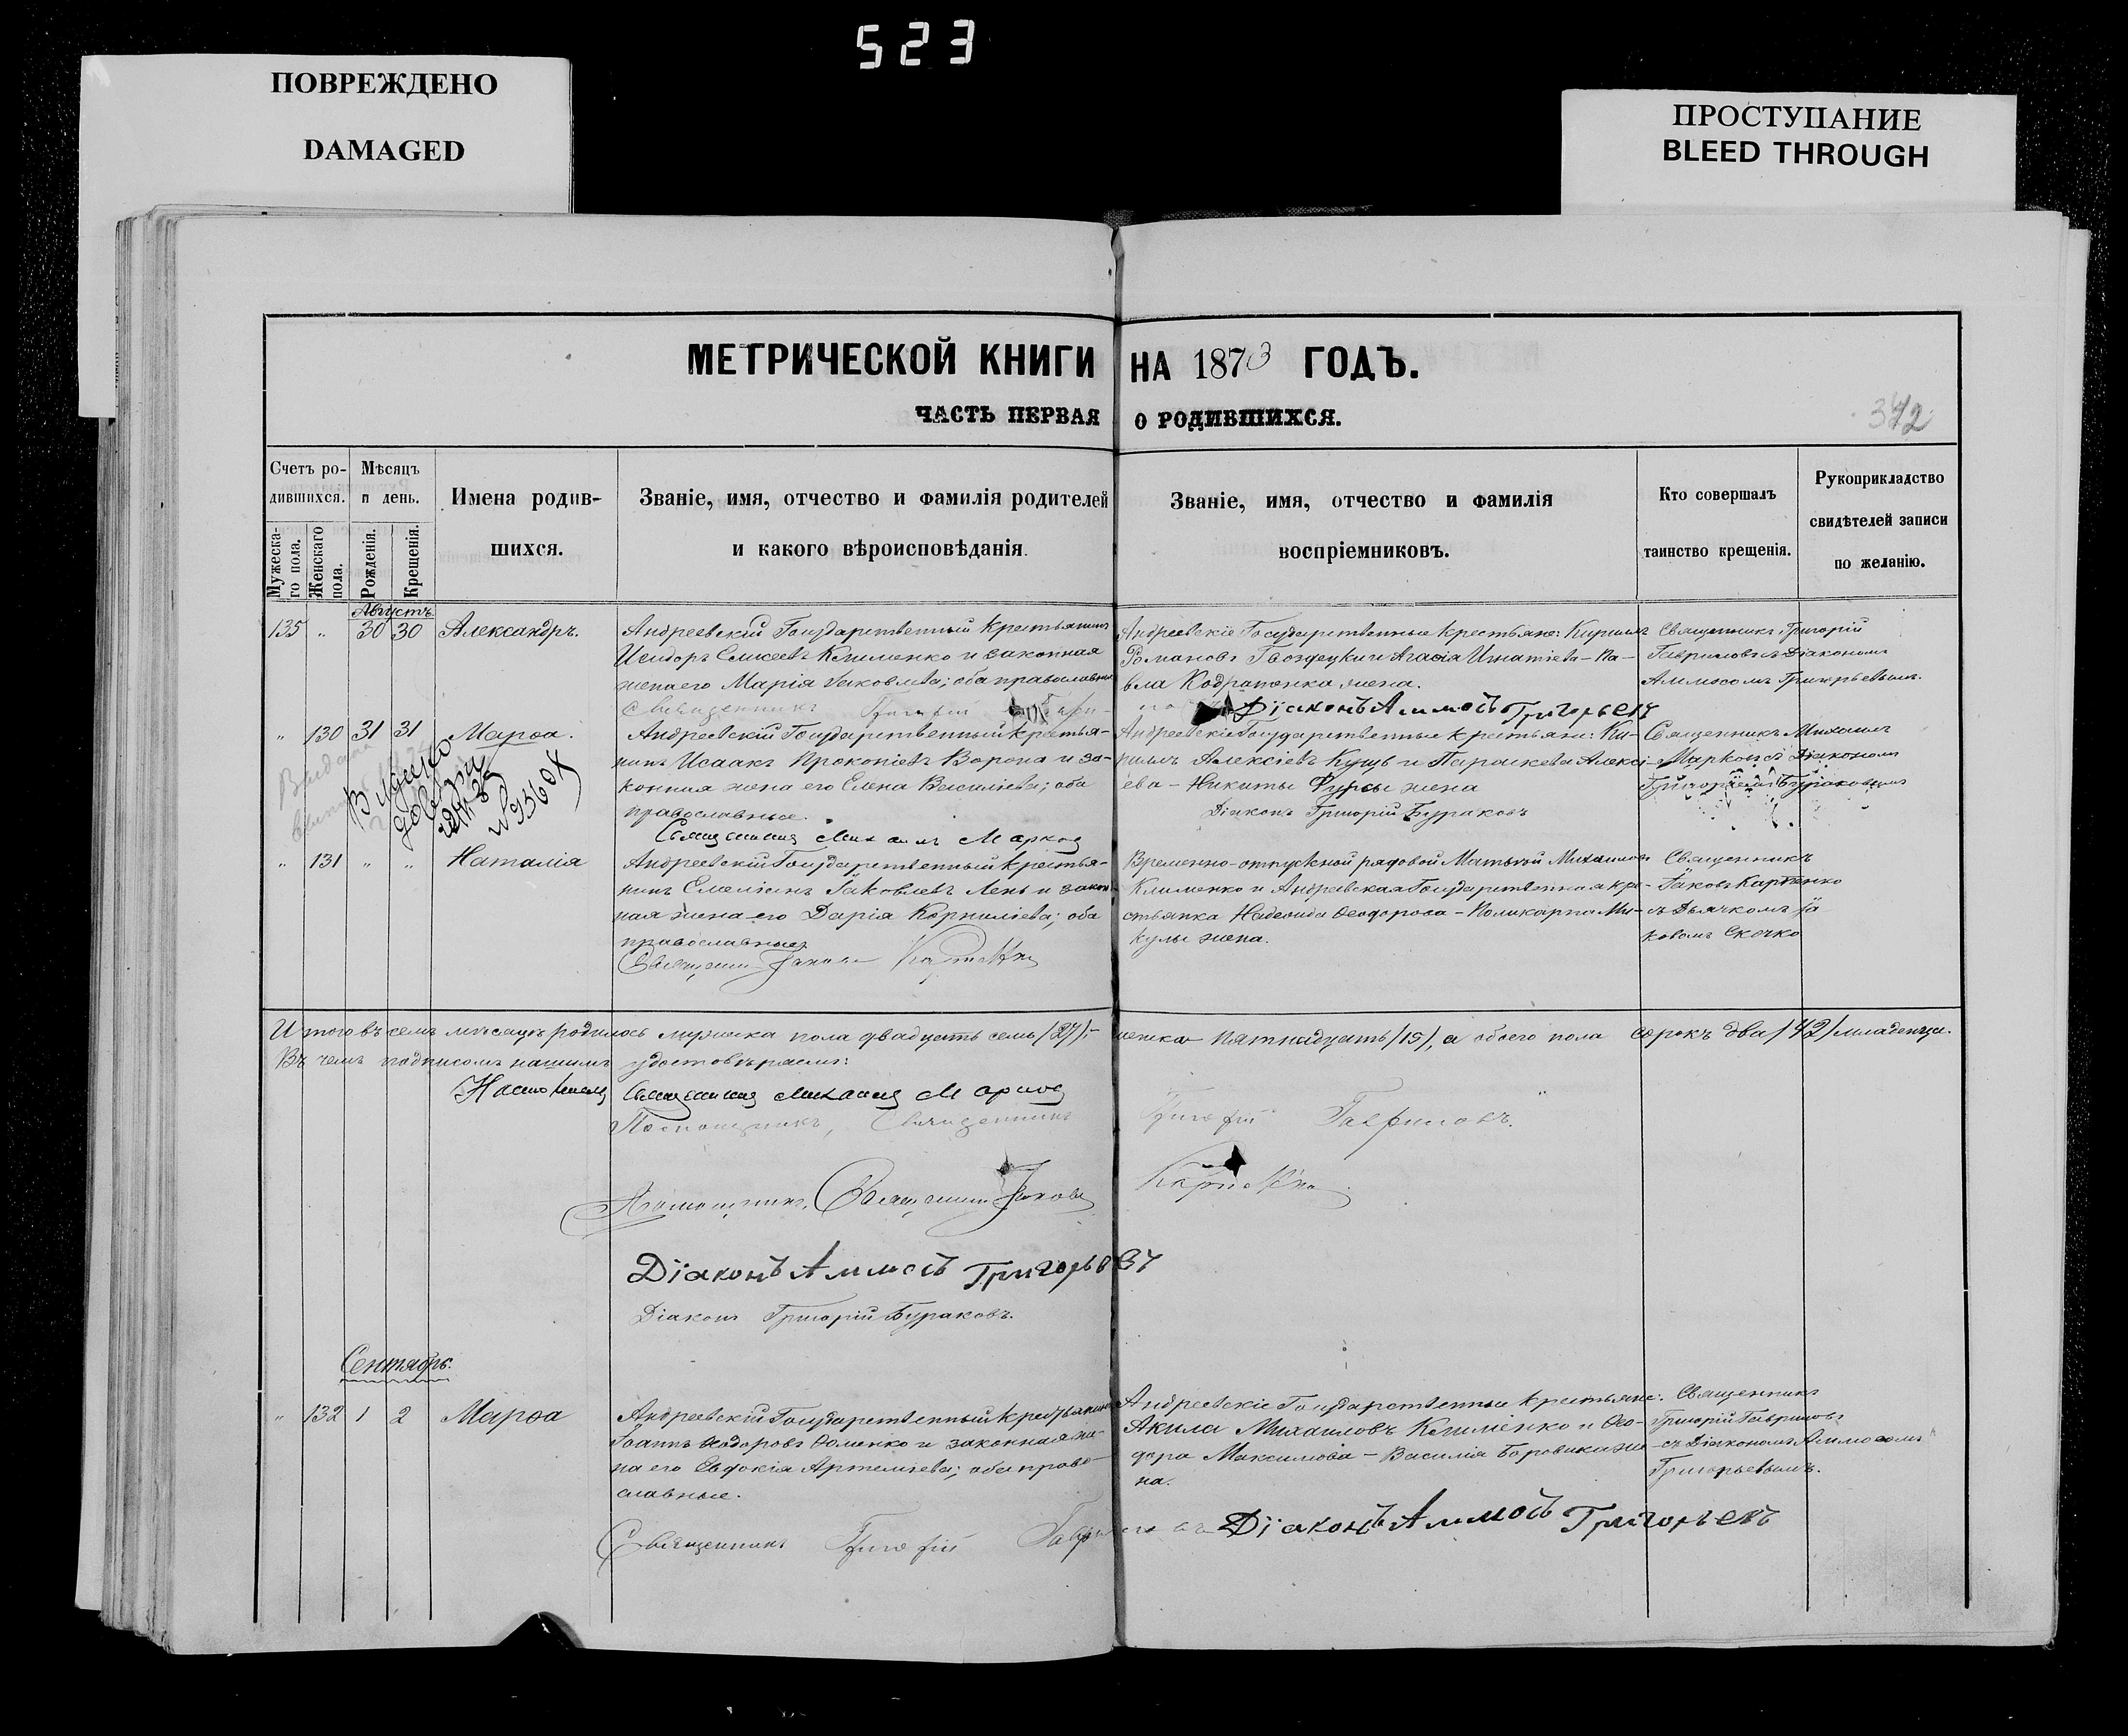 523
ПОВРЕЖДЕНО
DAMAGED
ПРОСТУПАНИЕ
BLEED THROUGH
МЕТРИЧЕСКОЙ КНИГИ НА 1873 ГОДЪ.
ЧАСТЬ ПЕРВАЯ О РОДИВШИХСЯ.
372
Счетъ ро-
дившихся.
Мужеска-
го пола.
Женскаго
пола.
Мѣсяцъ
и день.
Рожденія.
Крещенія.
Имена родив-
шихся.
Званіе, имя, отчество и фамилія родителей
и какого вѣроисповѣданія.
Званіе, имя, отчество и фамилія
воспріемниковъ.
Кто совершалъ
таинство крещенія.
Рукоприкладство
свидѣтелей записи
по желанію.
Августъ
135 " 30 30 Александръ.
Андреевскій Государственный крестьянинъ
Исидоръ Елисеевъ Клименко и законная
жена его Марія Яковлева; оба православные
Священникъ Григорій
Андреевскіе Государственные крестьяне: Кириллъ
Романовъ Гвоздецкій и Агафія Игнатіева – Па-
вла Кодрапонка жена.
Діаконъ Аммосъ Григорьевъ
Священникъ Григорій
Гавриловъ съ Діакономъ
Аммосомъ Григорьевымъ.
" 130 31 31 Марѳа.
Выдана
№ 9360
Андреевскій Государственный крестья-
нинъ Исаакъ Прокопіевъ Ворона и за-
конная жена его Елена Василіева; оба
православные.
Священникъ Михаилъ Марков
Андреевскіе Государственные крестьяне: Ки-
риллъ Алексіевъ Куць и Параскева Алексі-
ева – Никиты Фурсы жена
Діаконъ Григорій Бураковъ
Священникъ Михаилъ
Марковъ съ Діакономъ
Григоріемъ Бураковымъ
" 131 " " Наталія
Андреевскій Государственный крестья-
нинъ Емеліанъ Іаковлевъ Лень и закон-
ная жена его Дарія Корниліева; оба
православные
Временно-отпускной рядовой Матѳій Михаиловъ
Клименко и Андреевская Государственная кре-
стьянка Надежда Ѳеодорова – Поликарпа Ми-
кулы жена.
Священникъ
Іаковъ Карпенко
съ Дьячкомъ Іа
ковомъ Скочко
Итого въ семъ мѣсяцѣ родилось мужеска пола двадцать семь (27), женска пятнадцать (15), а обоего пола сорокъ два (42) младенца.
Въ чемъ подписомъ нашимъ удостовѣряемъ:
Настоятель Священникъ Михаилъ Марков
Помощникъ, Священникъ Григорій Гавриловъ.
Помощникъ, Священникъ Іаковъ Карпенко
Діаконъ Аммосъ Григорьевъ
Діаконъ Григорій Бураковъ.
Сентябрь.
" 132 1 2 Марѳа
Андреевскій Государственный крестьянинъ
Іоаннъ Ѳеодоровъ Ѳоменко и законная же-
на его Евдокія Артеміева; оба право-
славные.
Священникъ Григорій Гавриловъ
Андреевскіе Государственные крестьяне:
Акила Михаиловъ Клименко и Ѳео-
дора Максимова – Василія Боровика же-
на.
Діаконъ Аммосъ Григорьевъ
Священникъ
Григорій Гавриловъ
съ Діакономъ Аммосомъ
Григорьевымъ.